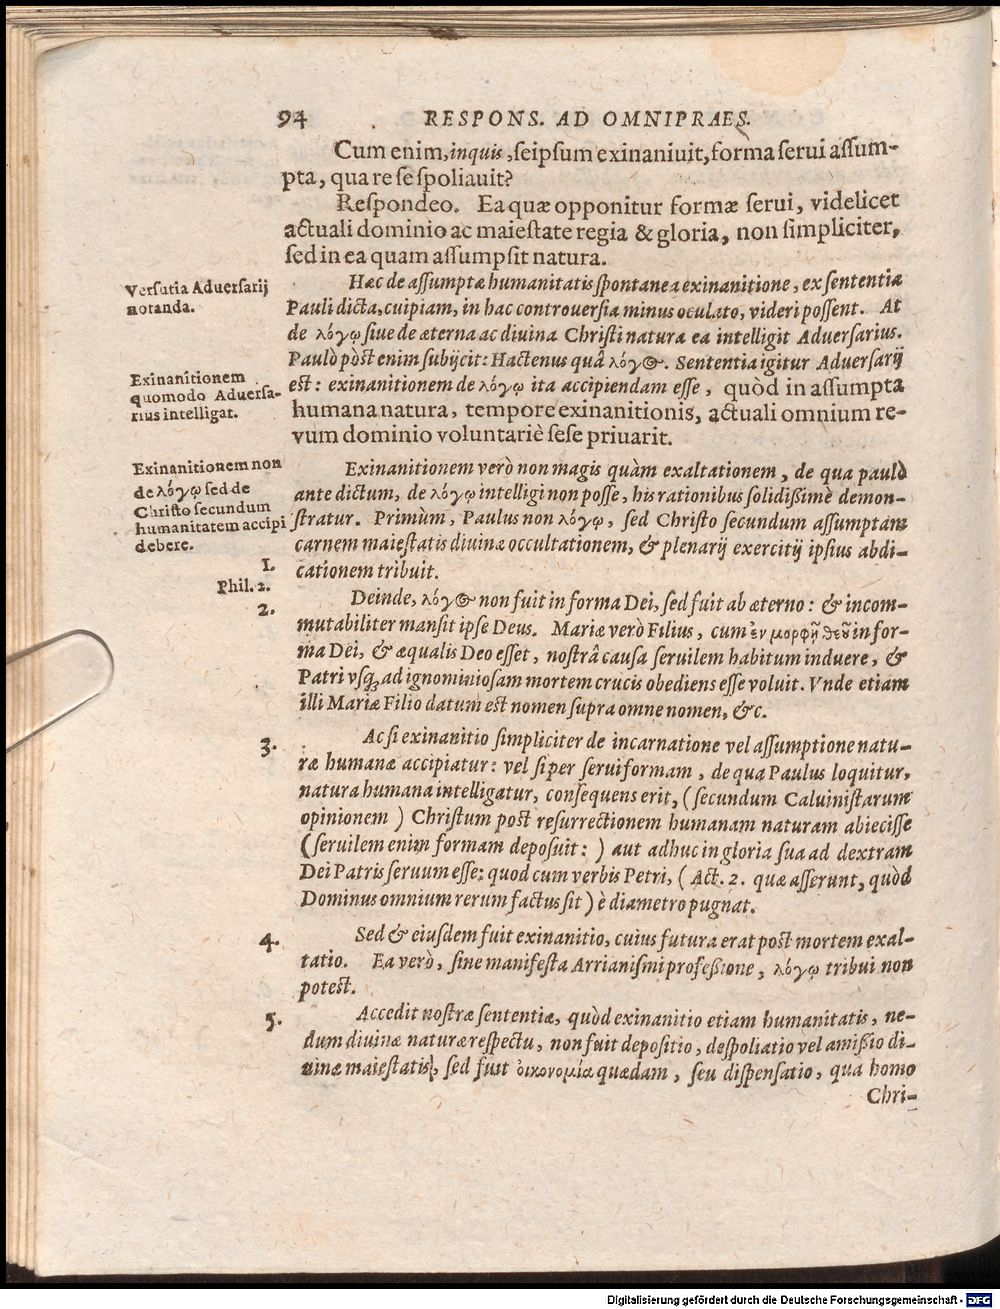 94 RESPONS. AD OMNIPRAES.
Cum enim, inquis, ſeipſum exinaniuit, forma ſerui aſſum-
pta, qua re ſe ſpoliauit?
Reſpondeo. Ea quæ opponitur formæ ſerui, videlicet
actuali dominio ac maieſtate regia & gloria, non ſimpliciter,
ſed in ea quam aſſumpſit natura.
Verſutia Aduerſarij
notanda.
Hæc de aſſumptæ humanitatis ſpontanea exinanitione, ex ſententia
Pauli dicta, cuipiam, in hac controuerſia minus oculato, videri poſſent. At
de λόγῳ ſiue de æterna ac diuina Chriſti natura ea intelligit Aduerſarius.
Paulò pòſt enim ſubijcit: Hactenus quâ λόγος. Sententia igitur Aduerſarij
Exinanitionem
quomodo Aduerſa-
rius intelligat.
eſt: exinanitionem de λόγῳ ita accipiendam eſſe, quòd in aſſumpta
humana natura, tempore exinanitionis, actuali omnium re-
rum dominio voluntariè ſeſe priuarit.
Exinanitionem non
de λόγῳ ſed de
Chriſto ſecundum
humanitatem accipi
debere.
Exinanitionem verò non magis quàm exaltationem, de qua paulò
ante dictum, de λόγῳ intelligi non poſſe, his rationibus ſolidißimè demon-
ſtratur. Primùm, Paulus non λόγῳ, ſed Chriſto ſecundum aſſumptam
carnem maieſtatis diuinæ occultationem, & plenarij exercitij ipſius abdi-
cationem tribuit.
1.
Phil. 2.
2.
Deinde, λόγος non fuit in forma Dei, ſed fuit ab æterno: & incom-
mutabiliter manſit ipſe Deus. Mariæ verò Filius, cum ἐν μορφῇ θεοῦ in for-
ma Dei, & æqualis Deo eſſet, noſtrâ cauſa ſeruilem habitum induere, &
Patri vſq; ad ignominioſam mortem crucis obediens eſſe voluit. Vnde etiam
illi Mariæ Filio datum eſt nomen ſupra omne nomen, &c.
3.
Ac ſi exinanitio ſimpliciter de incarnatione vel aſſumptione natu-
ræ humanæ accipiatur: vel ſi per ſerui formam, de qua Paulus loquitur,
natura humana intelligatur, conſequens erit, (ſecundum Caluiniſtarum
opinionem) Chriſtum poſt reſurrectionem humanam naturam abieciſſe
(ſeruilem enim formam depoſuit:) aut adhuc in gloria ſua ad dextram
Dei Patris ſeruum eſſe: quod cum verbis Petri, (Act. 2. quæ aſſerunt, quòd
Dominus omnium rerum factus ſit) è diametro pugnat.
4.
Sed & eiuſdem fuit exinanitio, cuius futura erat poſt mortem exal-
tatio. Ea verò, ſine manifeſta Arrianiſmi profeßione, λόγῳ tribui non
poteſt.
5.
Accedit noſtræ ſententiæ, quòd exinanitio etiam humanitatis, ne-
dum diuinæ naturæ reſpectu, non fuit depoſitio, deſpoliatio vel amißio di-
uinæ maieſtatis, ſed fuit οἰκονομία quædam, ſeu diſpenſatio, qua homo
Chri-
Digitalisierung gefördert durch die Deutsche Forschungsgemeinschaft - DFG